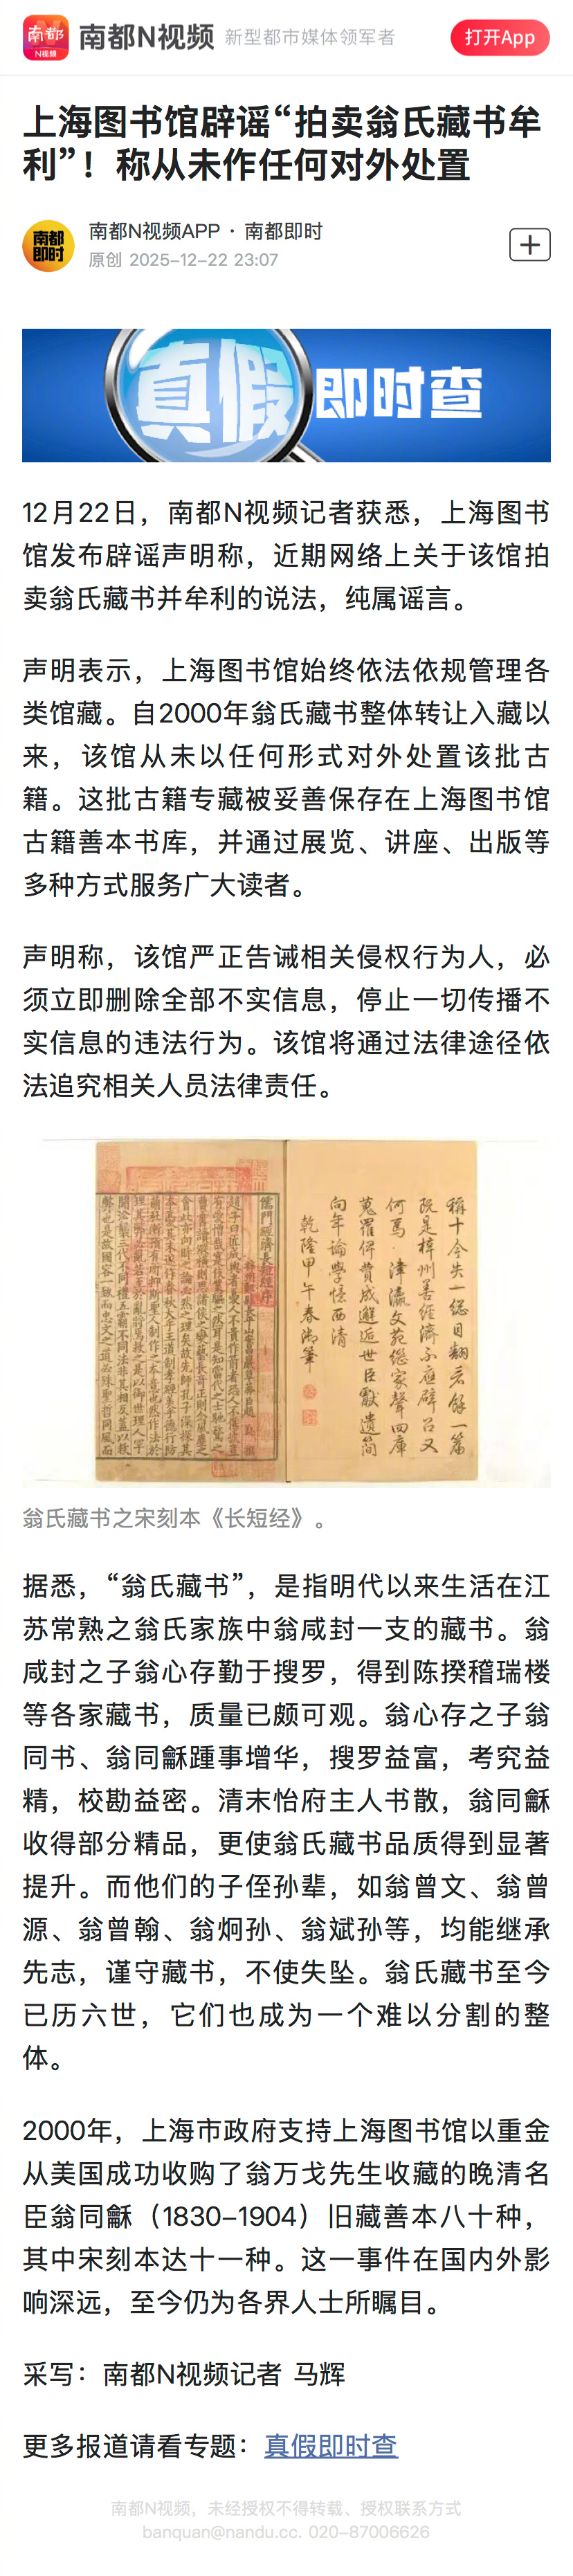 南都
N视频
南都N视频
新型都市媒体领军者
打开App
上海图书馆辟谣“拍卖翁氏藏书牟
利”！称从未作任何对外处置
南都
即时
南都N视频APP · 南都即时
原创 2025-12-22 23:07
真假即时查
12月22日，南都N视频记者获悉，上海图书
馆发布辟谣声明称，近期网络上关于该馆拍
卖翁氏藏书并牟利的说法，纯属谣言。
声明表示，上海图书馆始终依法依规管理各
类馆藏。自2000年翁氏藏书整体转让入藏以
来，该馆从未以任何形式对外处置该批古
籍。这批古籍专藏被妥善保存在上海图书馆
古籍善本书库，并通过展览、讲座、出版等
多种方式服务广大读者。
声明称，该馆严正告诫相关侵权行为人，必
须立即删除全部不实信息，停止一切传播不
实信息的违法行为。该馆将通过法律途径依
法追究相关人员法律责任。
稱十今失一總目翻前餘一篇
既是梓州善經濟不應辟召又
何焉津瀛文苑繼家聲四庫
蒐羅俾費成邂逅世臣獻遺簡
向年論學憶西清
乾隆甲午春御筆
儒門經濟長短經序
翁氏藏书之宋刻本《长短经》。
据悉，“翁氏藏书”，是指明代以来生活在江
苏常熟之翁氏家族中翁咸封一支的藏书。翁
咸封之子翁心存勤于搜罗，得到陈揆稽瑞楼
等各家藏书，质量已颇可观。翁心存之子翁
同书、翁同龢踵事增华，搜罗益富，考究益
精，校勘益密。清末怡府主人书散，翁同龢
收得部分精品，更使翁氏藏书品质得到显著
提升。而他们的子侄孙辈，如翁曾文、翁曾
源、翁曾翰、翁炯孙、翁斌孙等，均能继承
先志，谨守藏书，不使失坠。翁氏藏书至今
已历六世，它们也成为一个难以分割的整
体。
2000年，上海市政府支持上海图书馆以重金
从美国成功收购了翁万戈先生收藏的晚清名
臣翁同龢（1830-1904）旧藏善本八十种，
其中宋刻本达十一种。这一事件在国内外影
响深远，至今仍为各界人士所瞩目。
采写：南都N视频记者 马辉
更多报道请看专题：真假即时查
南都N视频，未经授权不得转载、授权联系方式
banquan@nandu.cc. 020-87006626